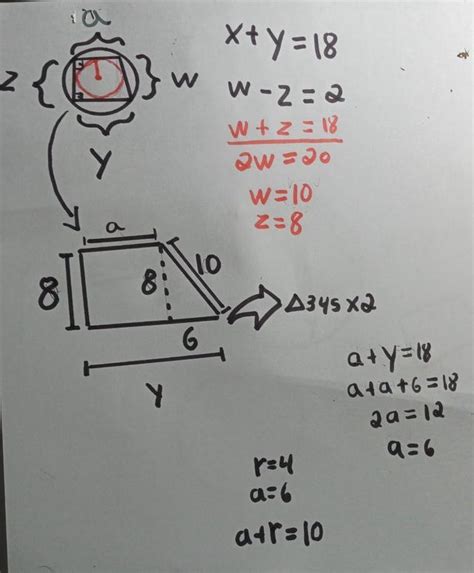 a
x+y=18
z
w
w-z=2
w+z=18
2w=20
y
w=10
z=8
a
8
8
10
6
△345x2
y
a+y=18
a+a+6=18
2a=12
a=6
r=4
a=6
a+r=10